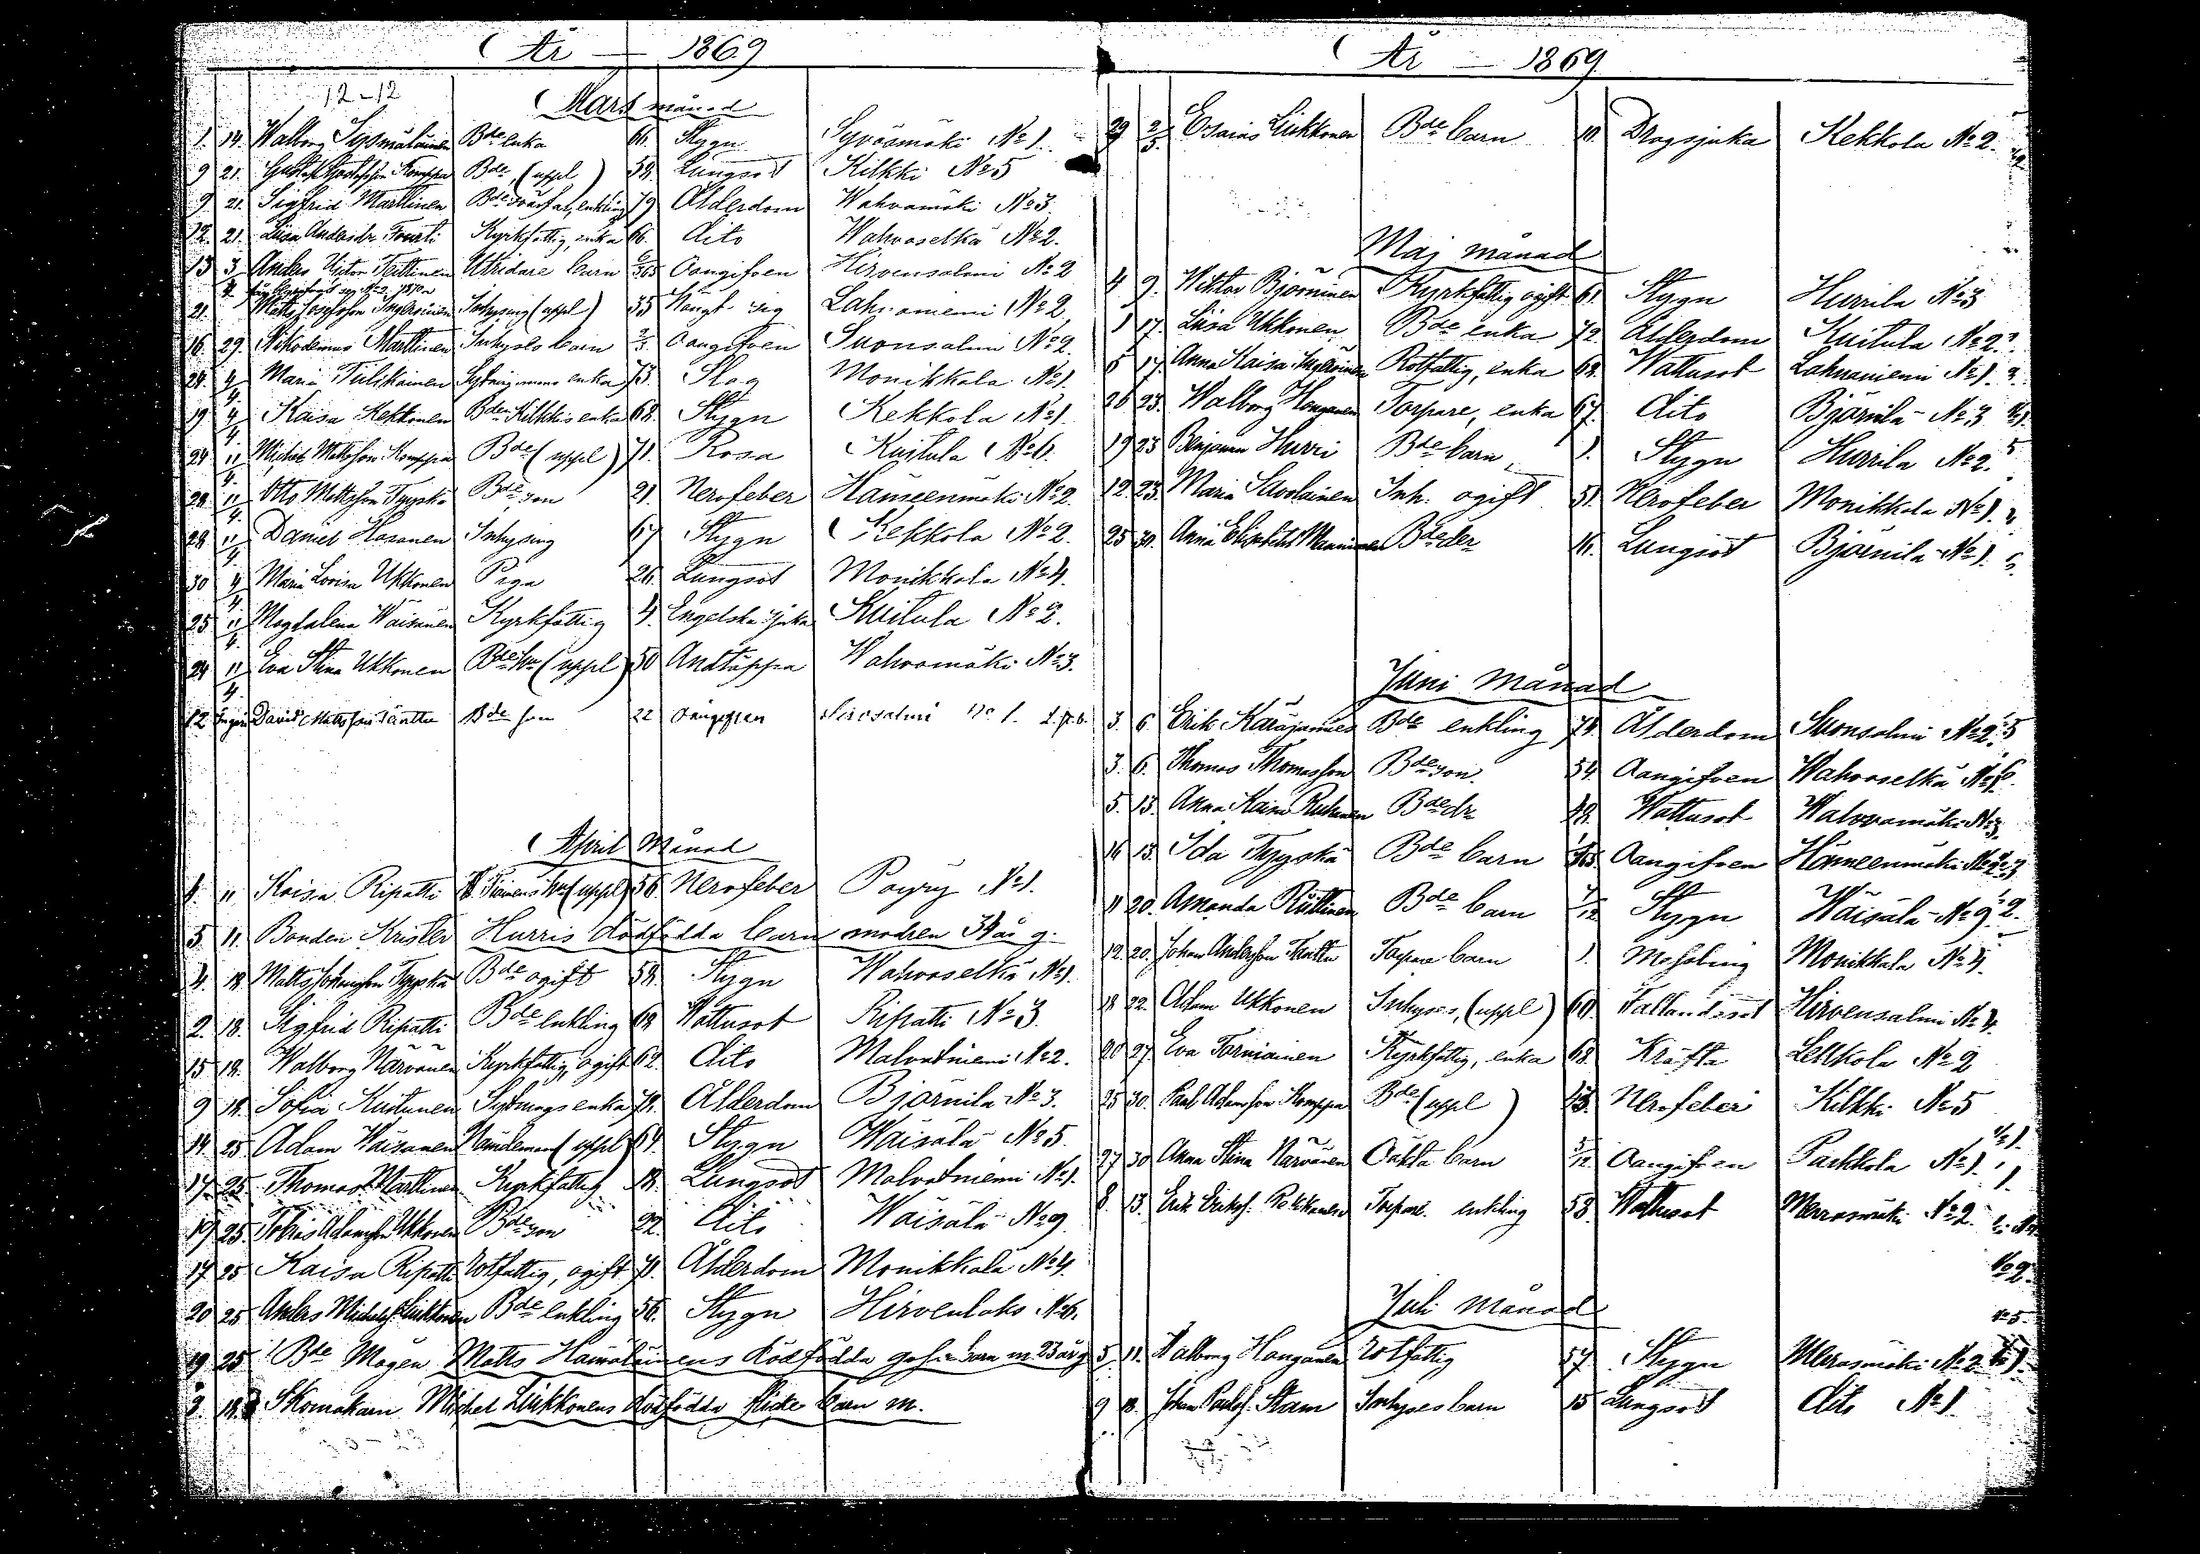 År 1869
12-12
Mars månad
1. 14. Walborg Sysmäläinen Bde enka 66. Stygn Syväsmäki No 1.
9 21. Gustaf Gustafsson Komppa Bde (uppl) 58. Lungsot Kilkki No 5
9. 21. Sigfrid Marttinen Bde svärfar, enkling 79 Ålderdom Wahvamäki No 3
12. 21. Liisa Andersdr Kyrkfattig, enka 66. dito Wahvaselkä No 2.
13 3/4. Anders Victor Teittinen barn 6/365 Oangifven Hirvensalmi No 2
21. Matts Josephsson Ingeröinen Inhysing (uppl) 35 Hängt sig Lahnaniemi No 2
16. 29. Nikodemus Marttinen Inhyses barn 2/3. Oangifven Suonsalmi No 2
24. 4/4. Maria Tulikainen enka 73. Slag Monikkala No 1.
19 4/4. Kaisa Kekkonen Bden Kilkkis enka 68. Stygn Kekkola No 1.
24 11/4. Michel Mattsson Komppa Bde (uppl) 71. Rosa Kuitula No 6.
28 11/4. Otto Mattsson Tyyskä Bde son 21. Nervfeber Hämeenmäki No 2.
28 11/4. Daniel Hasanen Inhysing 67 Stygn Kekkola No 2.
30 4/4. Maria Lovisa Ukkonen Piga 26. Lungsot Monikkala No 4.
25 11/4. Magdalena Wäisänen Kyrkfattig 4. Engelska sjuka Kuitula No 2.
24 11/4. Eva Stina Ukkonen Bde hu (uppl) 50 Andtäppa Wahvamäki No 3.
12 David Mattsson Bde son 22 Oangifven No 1.
April Månad
4. 11 Kaisa Ripatti hu (uppl) 56 Nervfeber Pöyry No 1.
5. 11. Bonden Krister Hurris dödfödda barn modren 34 år g.
4. 18. Matts Johansson Tyyskä Bde ogift 59. Stygn Wahvaselkä No 1.
2. 18. Sigfrid Ripatti Bde enkling 69. Wattusot Ripatti No 3.
15 18. Walborg Närvänen Kyrkfattig, ogift 62. dito Malvatniemi No 2.
9 18. Sofia Kuitunen Sytnings enka 78. Ålderdom Björnila No 3.
14 25 Adam Wäisänen Nämdeman (uppl) 64. Stygn Wäisälä No 5.
17. 25. Thomas Marttinen Kyrkfattig 18. Lungsot Malvatniemi No 1.
19 25 Tobias Adamsson Ukkonen Bde son 22. dito Wäisälä No 9
17 25 Kaisa Ripatti Rotfattig, ogift 71. Ålderdom Monikkala No 4.
20 25 Anders Michelss. Liukkonen Bde enkling 56. Stygn Hirvenlaks No 6.
19 25 Bde Mågen Matts Hämäläinens dödfödda barn m 23 år g
3. 18. Skomakarn Michel Liukkonens dödfödda flicke barn m.
År 1869
29 2/5 Esaias Liukkonen Bde barn 10. Dragsjuka Kekkola No 2.
Maj månad
4 9. Wiktor Björninen Kyrkfattig ogift 61. Stygn Hurrila No 3
1 17. Liisa Ukkonen Bde enka 72. Ålderdom Kuitula No 2.
6 17. Anna Kaisa Ingeröinen Rotfattig, enka 68. Wattusot Lahnaniemi No 1.
26 23. Walborg Hanganen Torpare, enka 67. dito Björnila No 3
19 23 Benjamin Hurri Bde barn 1. Stygn Hurrila No 2.
12 23. Maria Savolainen Inh. ogift 51. Nervfeber Monikkala No 1.
25 30. Anna Elisabeth Manninen Bde dr 16. Lungsot Björnila No 1.
Juni Månad
3. 6. Erik Käräjämies Bde enkling 74. Ålderdom Suonsalmi No 2.
3. 6. Thomas Thomasson Bde son. 54. Oangifven Wahvaselkä
5. 13. Anna Kaisa Bde dr 48. Wattusot Wahvamäki No 3.
16 13. Ida Tyyskä Bde barn Oangifven Hämeenmäki No 2
11 20. Amanda Riittinen Bde barn 7/12 Stygn Wäisälä No 9
12. 20. Johan Andersson Torpare barn 1. Messling Monikkala No 4.
18 22. Adam Ukkonen Inhyses, (uppl) 60. Fallandesot Hirvensalmi No 4.
20 27. Eva Torniainen Kyrkfattig, enka 68. Kräfta Lekkola No 2
25 30. Paul Adamsson Komppa Bde (uppl) Nervfeber Kilkki No 5
27 30 Anna Stina Närvänen Oäkta barn 3/12 Oangifven Parkkola No 1.
8. 13. Erik Eriks. Pekkanen Torpare enkling 53. Wattusot Merrasmäki No 2.
Juli Månad
5 11. Walborg Hanganen Rotfattig 57 Stygn Merrasmäki No 2
9 18. Johan Paulss. Stam Inhyses barn 15 Lungsot dito No 1.